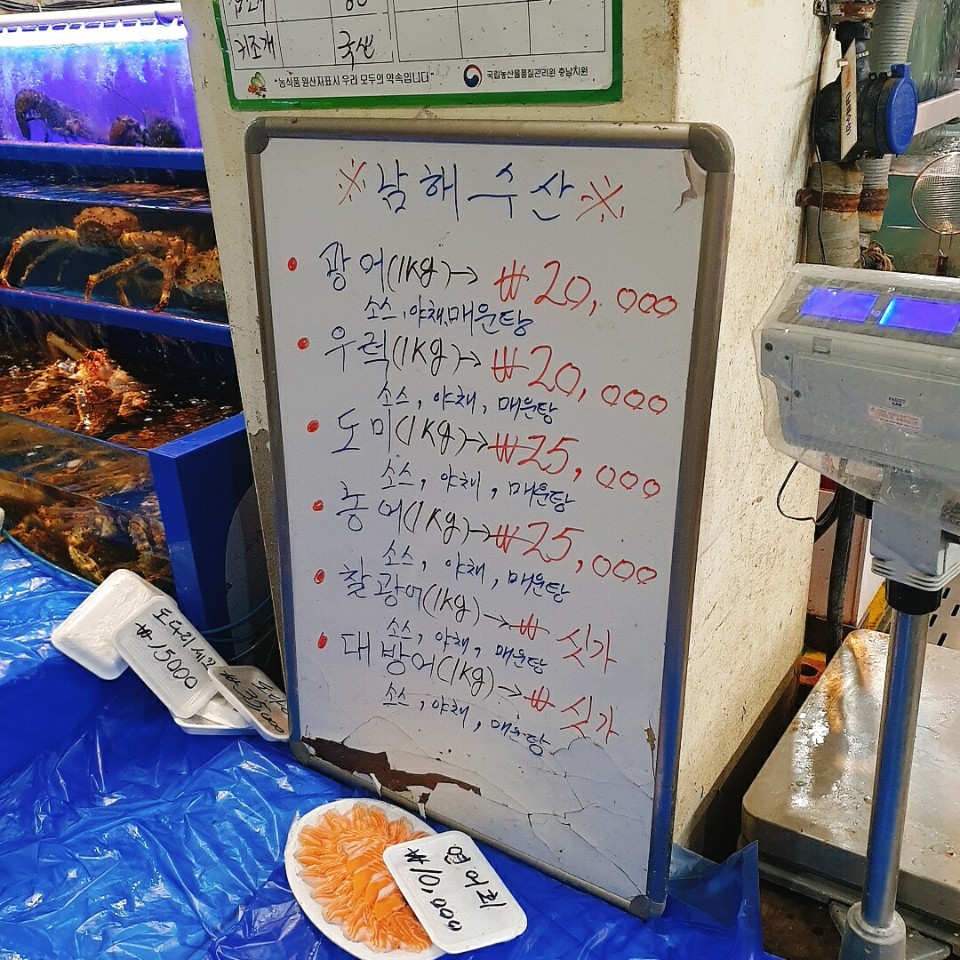 키조개 국산
"농식품 원산지표시 우리 모두의 약속입니다" 국립농산물품질관리원 충남지원
※남해수산※
• 광어(1kg)→ ₩20,000
소스, 야채, 매운탕
• 우럭(1kg)→ ₩20,000
소스, 야채, 매운탕
• 도미(1kg)→₩25,000
소스, 야채, 매운탕
• 농어(1kg)→₩25,000
소스, 야채, 매운탕
• 찰광어(1kg)→₩ 싯가
소스, 야채, 매운탕
• 대방어(1kg)→₩ 싯가
소스, 야채, 매운탕
₩15000
₩35,000
연어회
₩10,000